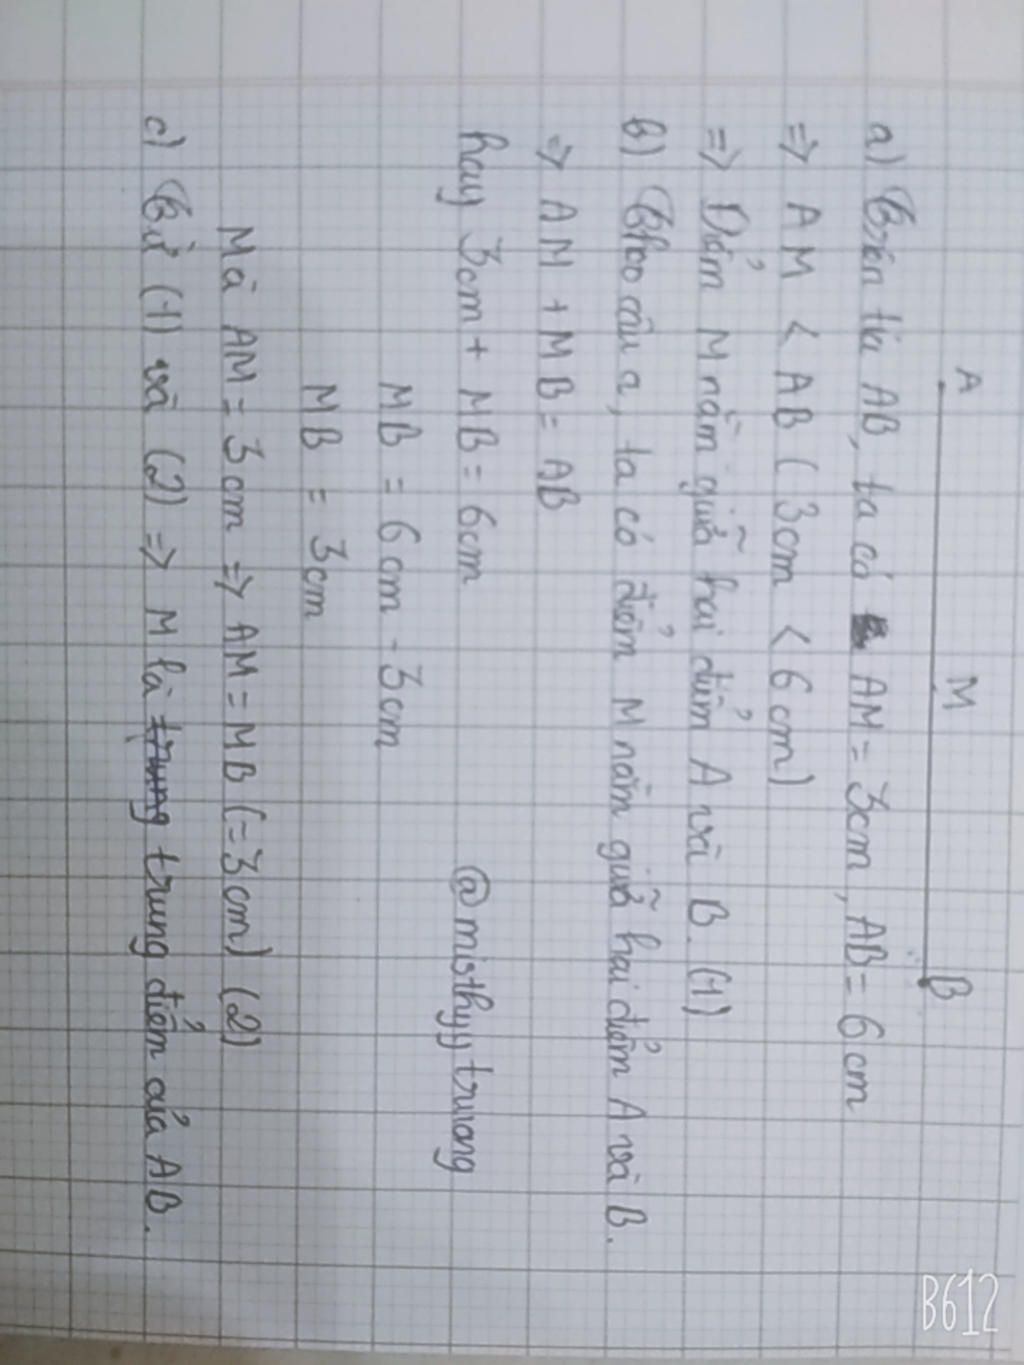 A M B
a) Trên tia AB, ta có AM = 3cm, AB = 6cm
=> AM < AB ( 3cm < 6cm)
=> Điểm M nằm giữa hai điểm A và B. (1)
b) Theo câu a, ta có điểm M nằm giữa hai điểm A và B.
=> AM + MB = AB
hay 3cm + MB = 6cm
@misthyytruiong
MB = 6cm - 3cm
MB = 3cm
Mà AM = 3cm => AM = MB (=3cm) (2)
c) Từ (1) và (2) => M là trung trung điểm của AB.
B612